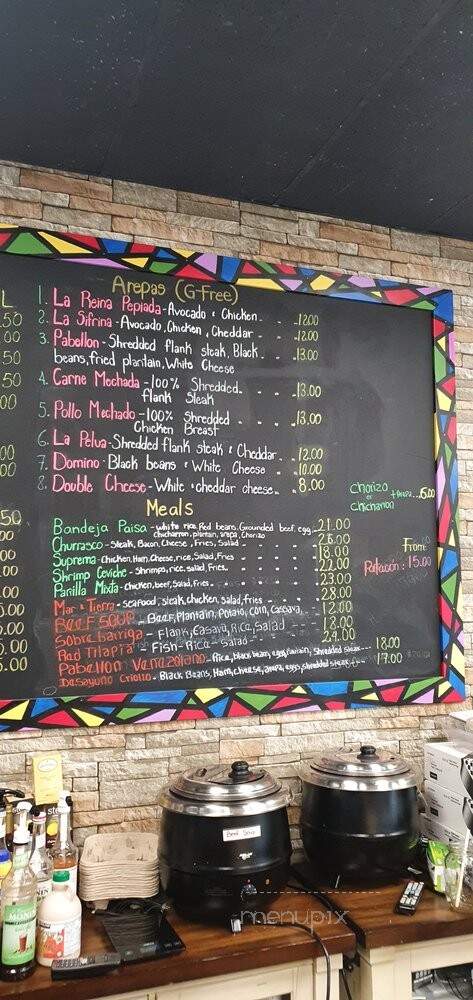 Arepas (G-Free)
1. La Reina Pepiada - Avocado & Chicken - - 12.00
2. La Sifrina - Avocado, Chicken, Cheddar - - 12.00
3. Pabellon - Shredded flank steak, Black - - 13.00
beans, fried plantain, White Cheese
4. Carne Mechada - 100% Shredded - - - 13.00
flank Steak
5. Pollo Mechado - 100% Shredded - - - 13.00
Chicken Breast
6. La Pelua - Shredded flank steak & Cheddar - 12.00
7. Domino - Black beans & White Cheese - - 10.00
8. Double Cheese - White & cheddar cheese - 8.00
Meals
Bandeja Paisa - white rice, Red beans, Grounded beef, egg 21.00
chicharron, plantain, arepa, Chorizo
Churrasco - Steak, Bacon, Cheese, Fries, Salad 26.00
Suprema - Chicken, Ham, Cheese, rice, Salad, Fries 18.00
Shrimp Ceviche - Shrimps, rice, salad, Fries 22.00
Parilla Mixta - chicken, beef, Salad, Fries 23.00
Mar & Tierra - seafood, steak, chicken, salad, fries 28.00
BEEF SOUP - Beef, Plantain, Potato, corn, Cassava, 12.00
Sobre Barriga - Flank, Casava, Rice, Salad 18.00
Red Tilapia - Fish - Rice - Salad 24.00
Pabellon Venezolano - Rice, black bean, egg, plantain, Shredded steak 18.00
Desayuno Criollo - Black Beans, Ham, cheese, arepa, eggs, shredded steak 17.00
chorizo
or
chicharron
+ Arepa 15.00
From:
15.00
L
50
00
50
00
50
5.00
5.00
Beef Soup
MONIN
menupix